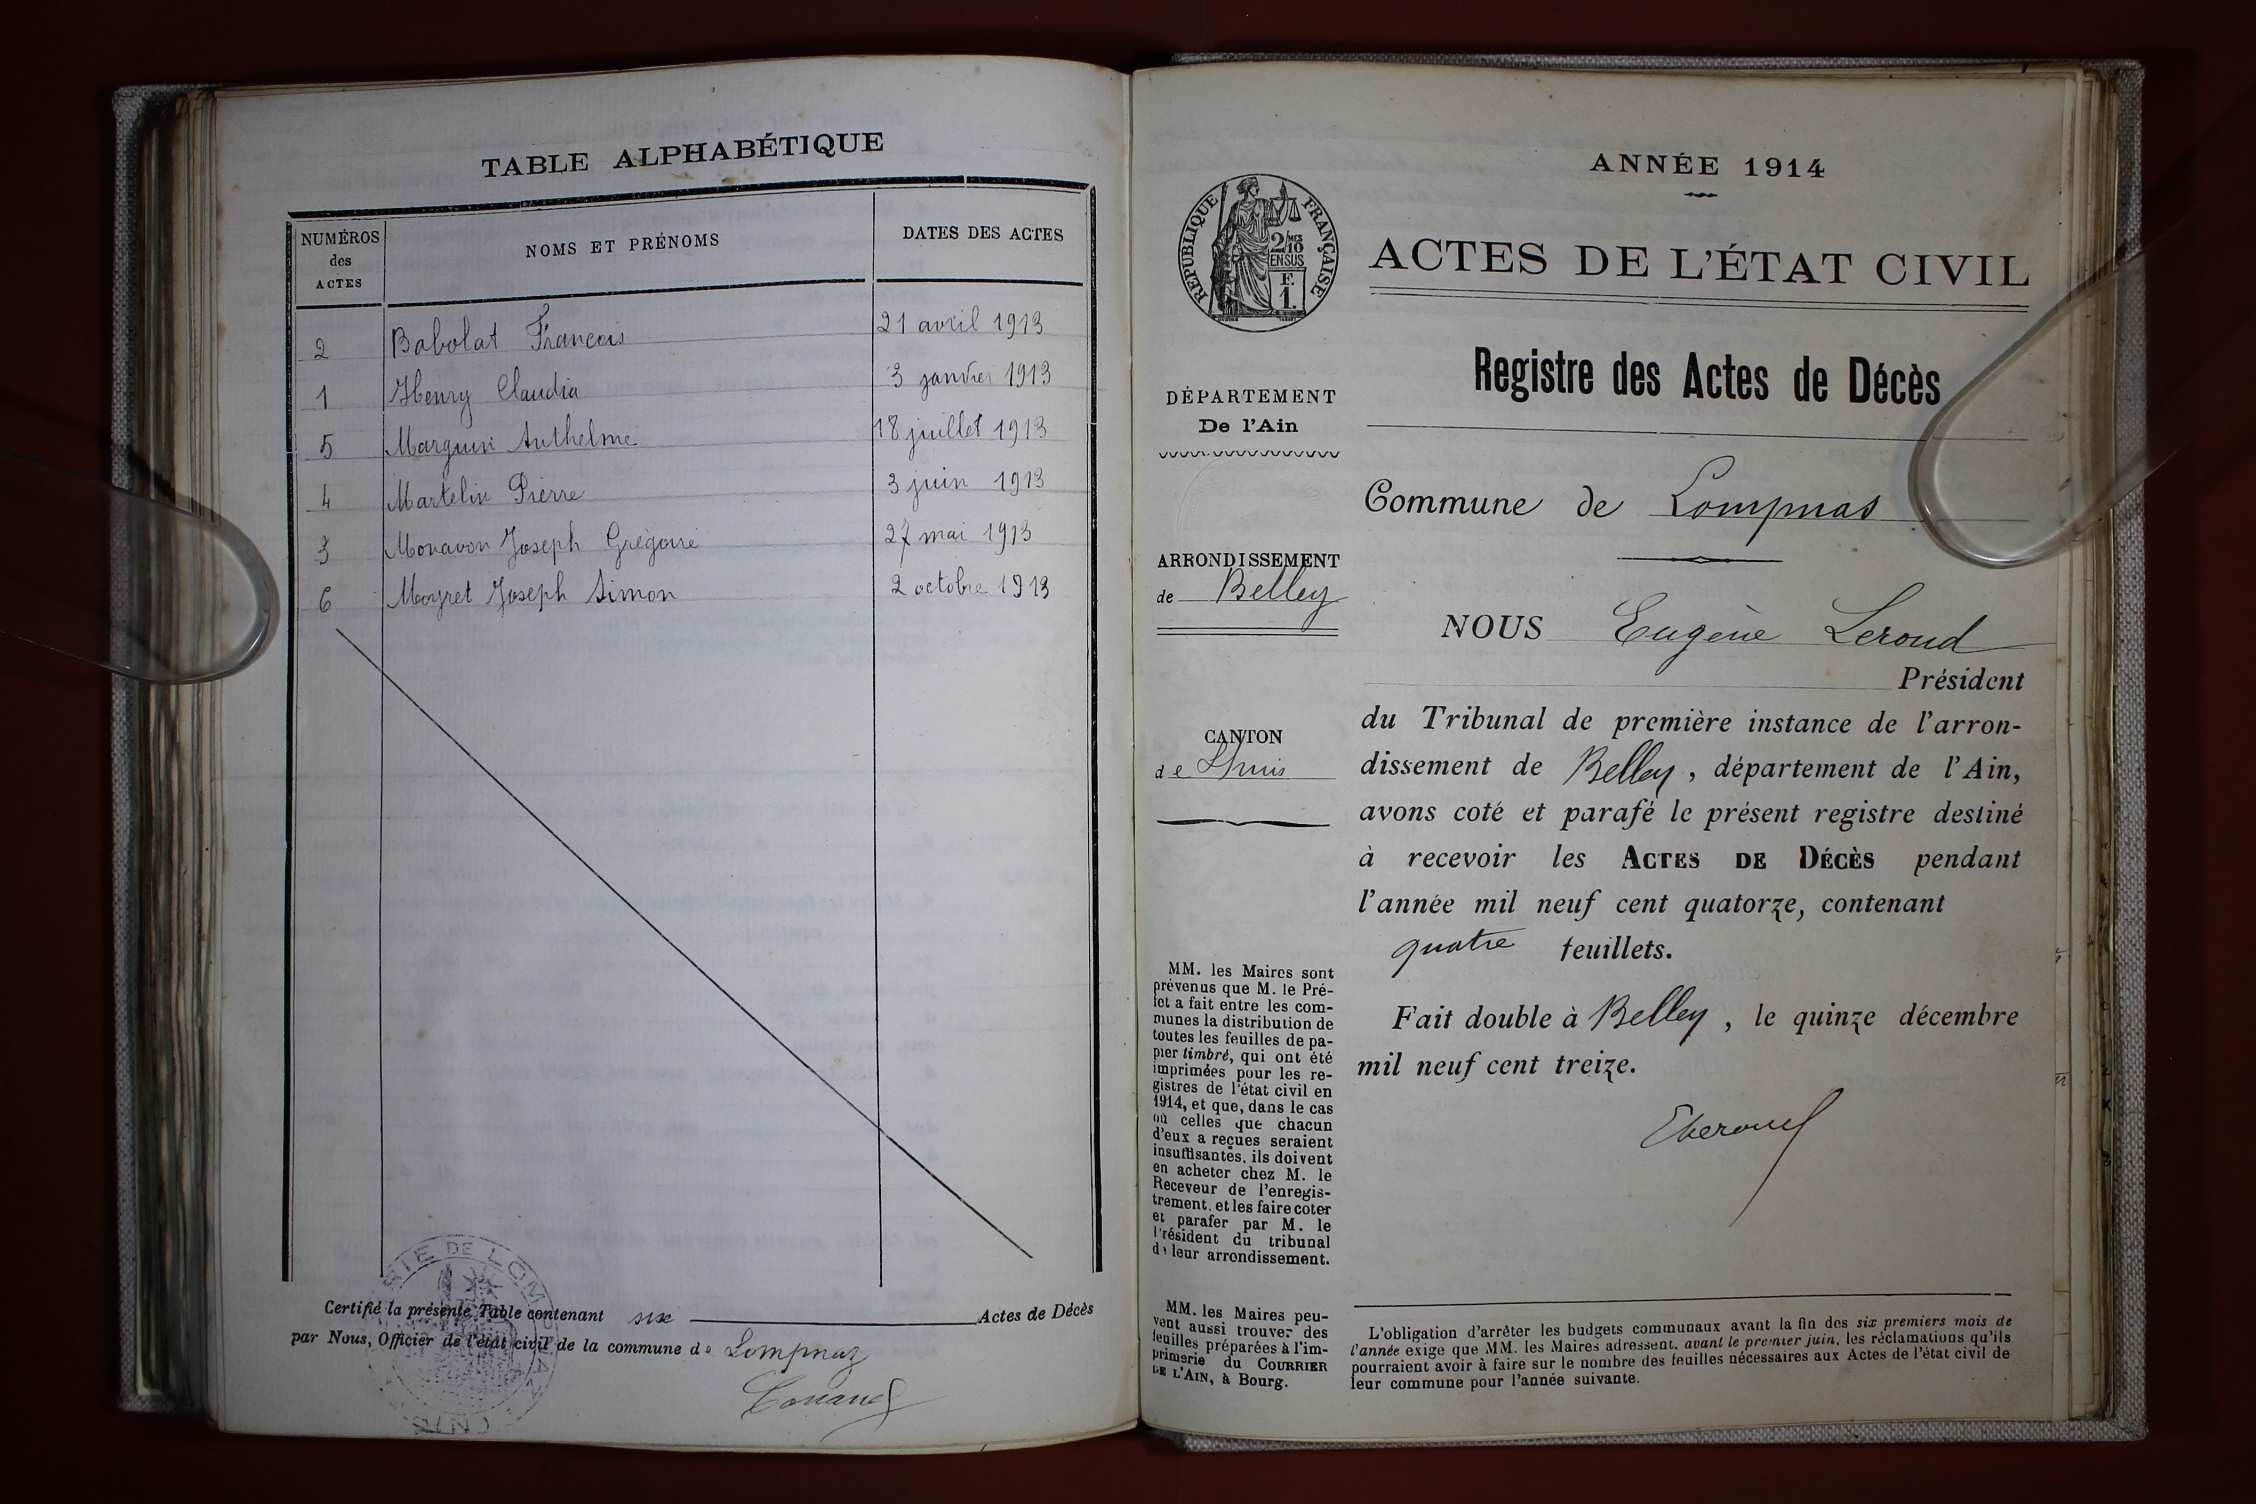 TABLE ALPHABÉTIQUE
NUMÉROS des ACTES
NOMS ET PRÉNOMS
DATES DES ACTES
2 Babolat François 21 avril 1913
1 Henry Claudia 3 janvier 1913
5 Marguin Anthelme 18 juillet 1913
4 Martelin Pierre 3 juin 1913
3 Monavon Joseph Grégoire 27 mai 1913
6 Moyret Joseph Simon 2 octobre 1913
Certifié la présente Table contenant six Actes de Décès
par Nous, Officier de l'état civil de la commune de Lompnaz
ANNÉE 1914
RÉPUBLIQUE FRANÇAISE
2/10 MES
EN SUS
F.
1.
ACTES DE L'ÉTAT CIVIL
Registre des Actes de Décès
DÉPARTEMENT
De l'Ain
Commune de Lompnas
ARRONDISSEMENT
de Belley
NOUS Eugène Leroud
Président
du Tribunal de première instance de l'arron-
dissement de Belley, département de l'Ain,
avons coté et parafé le présent registre destiné
à recevoir les ACTES DE DÉCÈS pendant
l'année mil neuf cent quatorze, contenant
quatre feuillets.
Fait double à Belley, le quinze décembre
mil neuf cent treize.
CANTON
de Lhuis
MM. les Maires sont
prévenus que M. le Pré-
fet a fait entre les com-
munes la distribution de
toutes les feuilles de pa-
pier timbré, qui ont été
imprimées pour les re-
gistres de l'état civil en
1914, et que, dans le cas
où celles que chacun
d'eux a reçues seraient
insuffisantes, ils doivent
en acheter chez M. le
Receveur de l'enregis-
trement, et les faire coter
et parafer par M. le
Président du tribunal
de leur arrondissement.
MM. les Maires peu-
vent aussi trouver des
feuilles préparées à l'im-
primerie du COURRIER
DE L'AIN, à Bourg.
L'obligation d'arrêter les budgets communaux avant la fin des six premiers mois de
l'année exige que MM. les Maires adressent, avant le premier juin, les réclamations qu'ils
pourraient avoir à faire sur le nombre des feuilles nécessaires aux Actes de l'état civil de
leur commune pour l'année suivante.